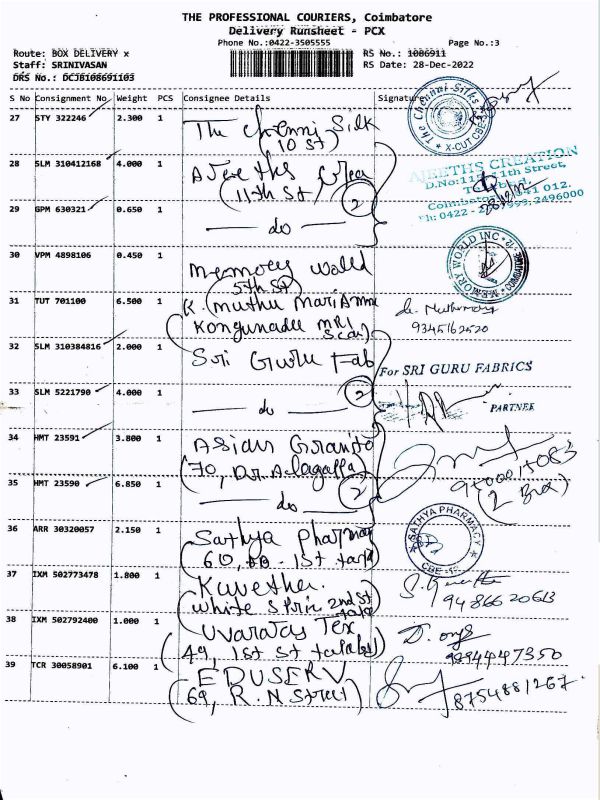 THE PROFESSIONAL COURIERS, Coimbatore
Delivery Runsheet - PCX
Phone No.:0422-3505555 Page No.:3
Route: BOX DELIVERY x RS No.: 1086911
Staff: SRINIVASAN RS Date: 28-Dec-2022
DRS No.: DCJB108691103
S No Consignment No Weight PCS Consignee Details Signature
27 STY 322246 2.300 1 The Chenni Silk
(10 St)
The Chennai Silks
★ X-CUT CBE
28 SLM 310412168 4.000 1
(11th St) 2
AJEETHS CREATION
D.No:11 11th Street,
Coimbatore 641 012.
Ph: 0422 - 2496000
29 GPM 630321 0.650 1 — do —
30 VPM 4898106 0.450 1 Memory World
(5th St)
MEMORY WORLD INC
COIMBATORE
31 TUT 701100 6.500 1 K. Muthu Mariamma
(Kongunadu MRI Scan)
9345162520
32 SLM 310384816 2.000 1 Sri Guru Fab
For SRI GURU FABRICS
33 SLM 5221790 4.000 1 — do — 2
PARTNER
34 HMT 23591 3.800 1 Asian Granito
(70, Dr. Alagappa)
35 HMT 23590 6.850 1 — do — 2
36 ARR 30320057 2.150 1 Sathya Pharmacy
SATHYA PHARMACY
CBE -12.
37 IXM 502773478 1.800 1
38 IXM 502792400 1.000 1
(49, 1st St
39 TCR 30058901 6.100 1 EDUSERV
(69, R. N Street)
8754881267